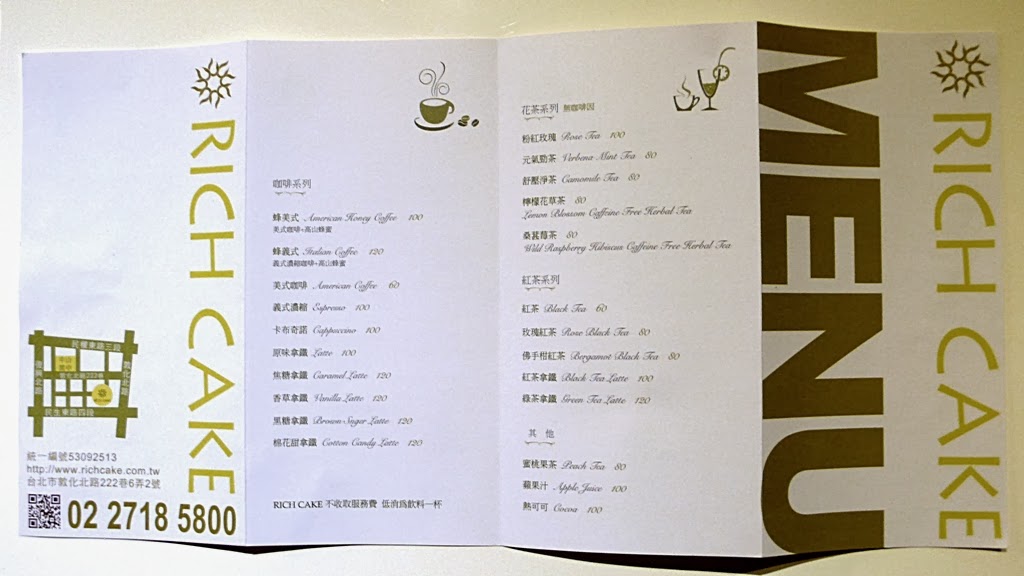 RICH CAKE
民權東路三段
復興北路
敦化北路
民生東路四段
統一編號53092513
http://www.richcake.com.tw
台北市敦化北路222巷6弄2號
02 2718 5800
咖啡系列
蜂美式 American Honey Coffee 100
美式咖啡+高山蜂蜜
蜂義式 Italian Coffee 120
義式濃縮咖啡+高山蜂蜜
美式咖啡 American Coffee 60
義式濃縮 Espresso 100
卡布奇諾 Cappuccino 100
原味拿鐵 Latte 100
焦糖拿鐵 Caramel Latte 120
香草拿鐵 Vanilla Latte 120
黑糖拿鐵 Brown Sugar Latte 120
棉花甜拿鐵 Cotton Candy Latte 120
RICH CAKE 不收取服務費 低消為飲料一杯
花茶系列 無咖啡因
粉紅玫瑰 Rose Tea 100
元氣勁茶 Verbena Mint Tea 80
舒壓淨茶 Camomile Tea 80
檸檬花草茶 80
Lemon Blossom Caffeine Free Herbal Tea
桑葚莓茶 80
Wild Raspberry Hibiscus Caffeine Free Herbal Tea
紅茶系列
紅茶 Black Tea 60
玫瑰紅茶 Rose Black Tea 80
佛手柑紅茶 Bergamot Black Tea 80
紅茶拿鐵 Black Tea Latte 100
綠茶拿鐵 Green Tea Latte 120
其 他
蜜桃果茶 Peach Tea 80
蘋果汁 Apple Juice 100
熱可可 Cocoa 100
MENU
RICH CAKE